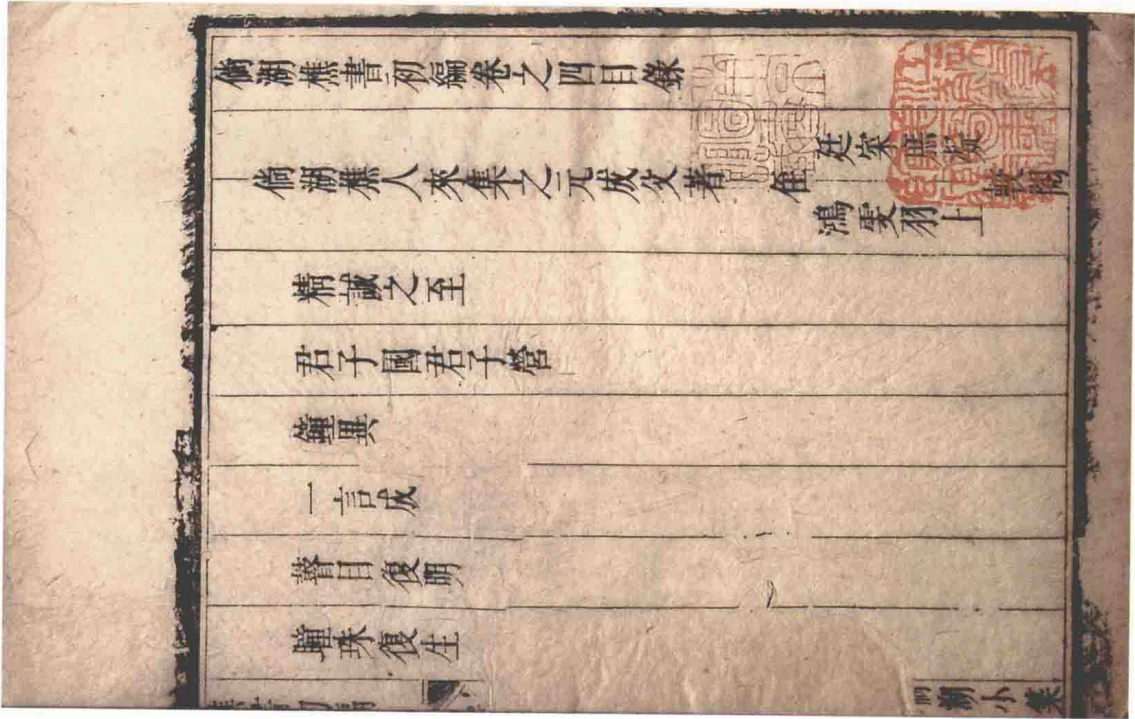 倘湖樵書初編卷之四目錄
倘湖樵人來集之元成父著 侄
廷寀
鴻雯羽上
閱
精誠之至
君子國君子營
鐘異
一言成
瞽目復明
瞳珠復生
倘湖小築